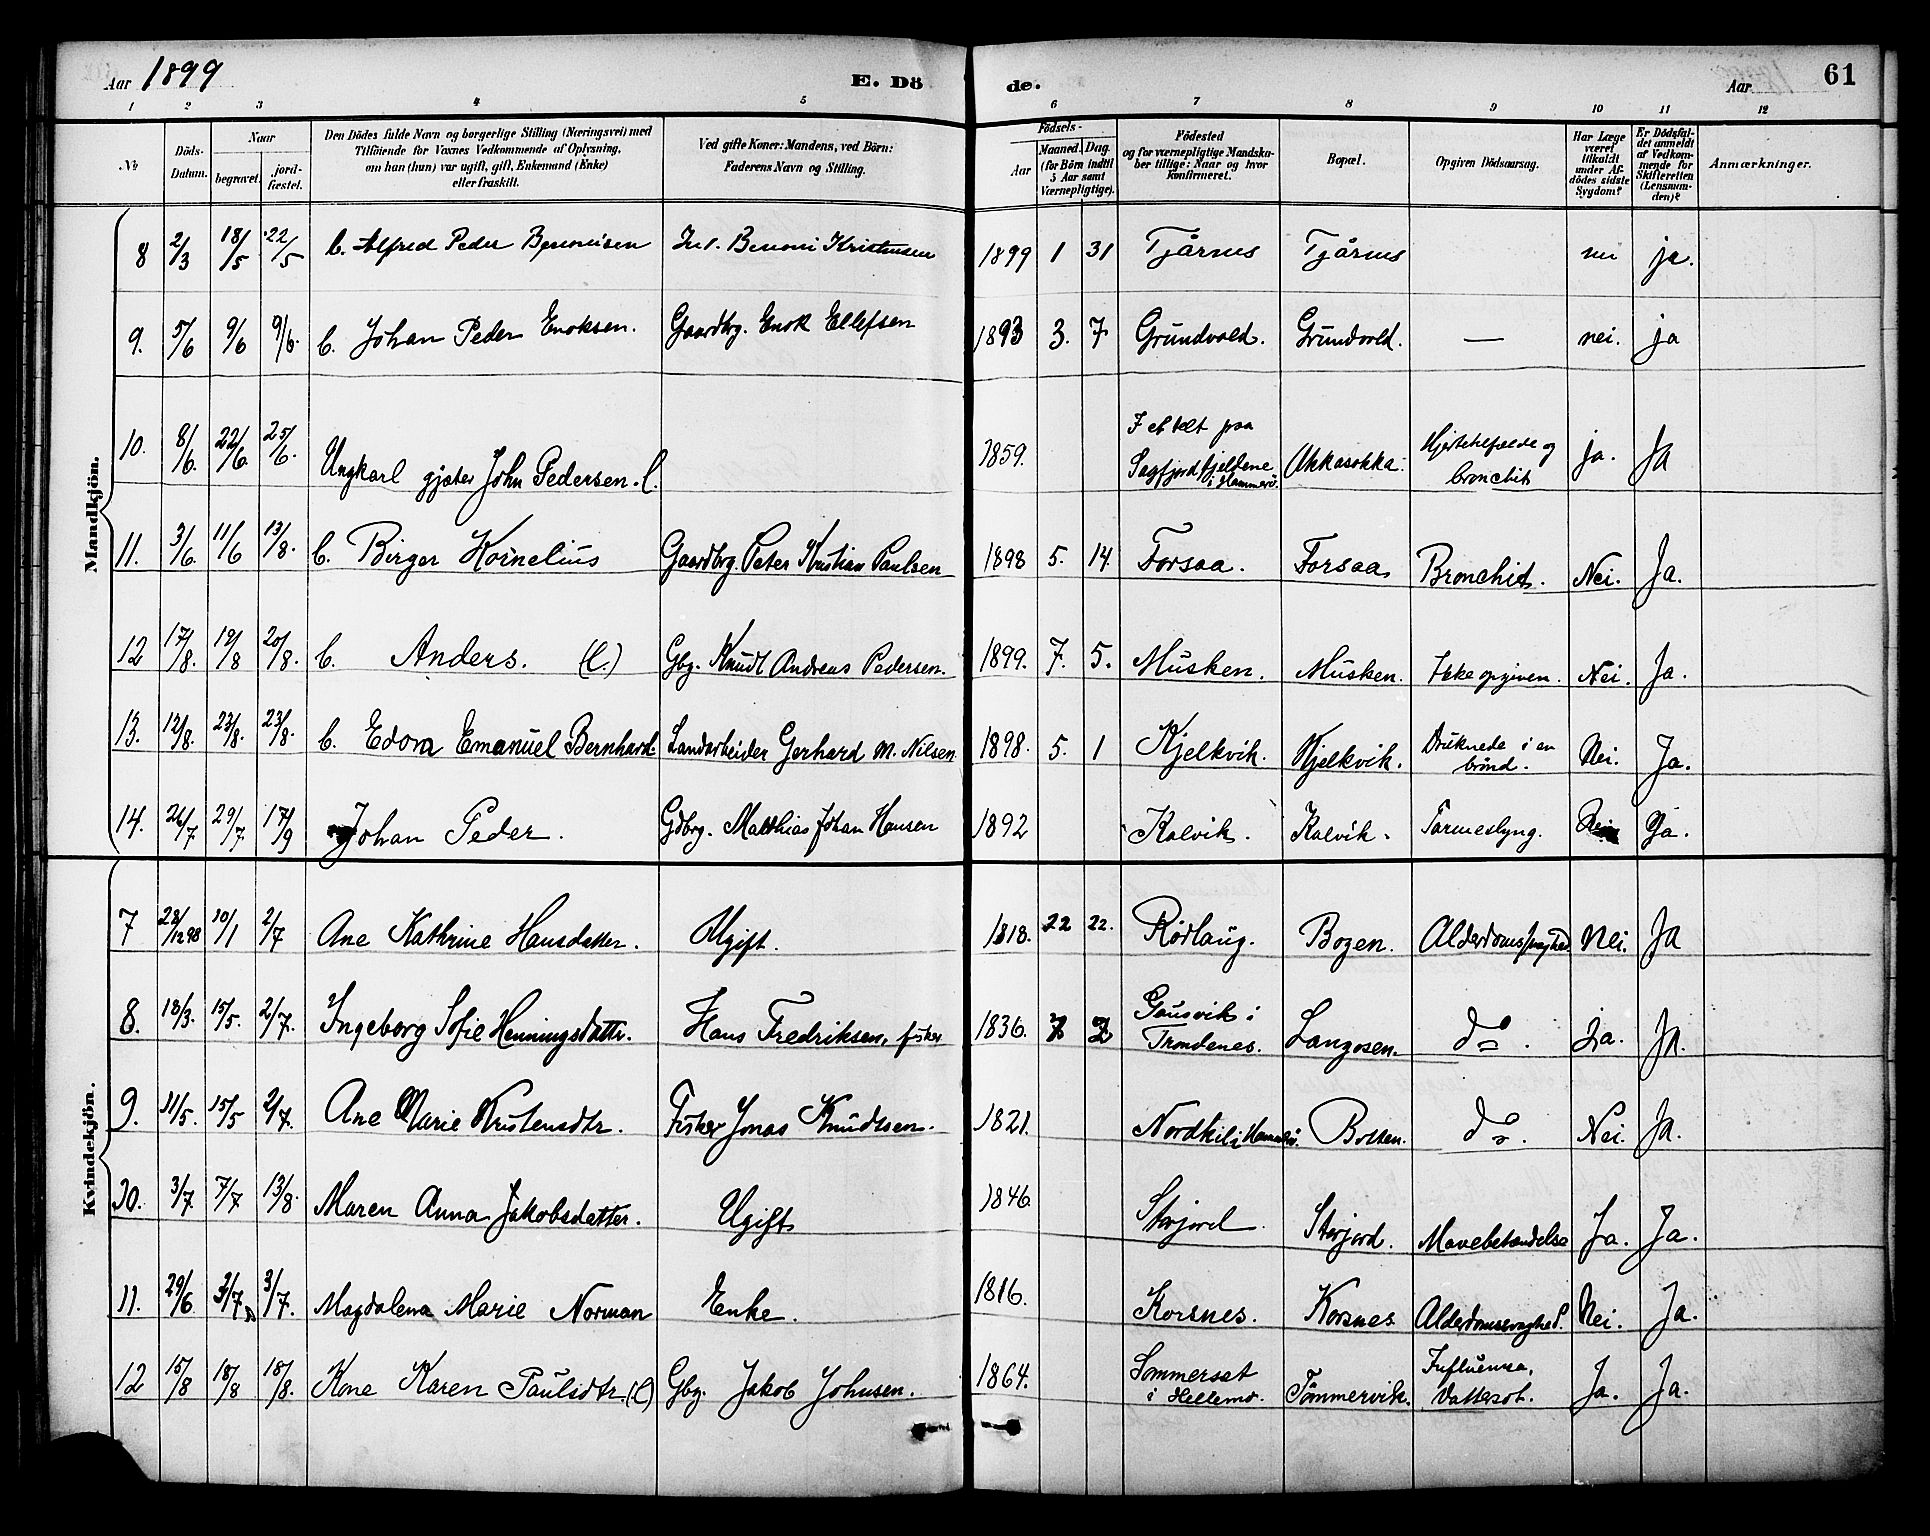 Aar 1899
E. Dö
de.
Aar
61
1 2 3 4 5 6 7 8 9 10 11 12
No
Döds-Datum.
Naar
begravet.
jord-fæstet.
Den Dödes fulde Navn og borgerlige Stilling (Næringsvei) med
Tilföiende for Voxnes Vedkommende af Oplysning,
om han (hun) var ugift, gift, Enkemand (Enke)
eller fraskilt.
Ved gifte Koner: Mandens, ved Börn:
Faderens Navn og Stilling.
Födsels-
Aar
Maaned. Dag.
(for Börn indtil
5 Aar samt
Værnepligtige).
Födested
og for værnepligtige Mandska-
ber tillige: Naar og hvor
konfirmeret.
Bopæl.
Opgiven Dödsaarsag.
Har Læge
været
tilkaldt
under Af-
dödes sidste
Sygdom?
Er Dödsfal-
det anmeldt
af Vedkom-
mende for
Skifteretten
(Lensman-
den)?
Anmærkninger.
Mandkjön.
8 2/3 18/5 22/5 b. Alfred Peder Benonisen Ind. Benoni Kristensen 1899 1 31 Tjårnes Tjårnes nei ja.
9. 5/6 9/6 9/6. b. Johan Peder Enoksen. Gaardbrg. Enok Ellefsen 1893 3. 7 Grundvold. Grundvold. — nei. ja
10. 8/6. 22/6. 25/6. Ungkarl gjæter John Pedersen. l. 1859. I et telt paa
Sagfjordfjeldene
i Hammerö. Ukkasokka. Hjertetilfælde og
bronchit ja. Ja
11. 3/6. 11/6 13/8. b. Birger Kornelius Gaardbrg. Peter Kristian Paulsen 1898 5. 14. Forsaa. Forsaa Bronchit. Nei. Ja.
12 17/8. 19/8 20/8. b. Anders. (l.) Gbg. Knudt Andreas Pedersen. 1899. 7. 5. Musken. Musken. Ikke opgiven. Nei. Ja.
13. 12/8. 23/8. 23/8. b. Edora Emanuel Bernhard. Landarbeider Gerhard M. Nilsen 1898. 5. 1 Kjelkvik. Kjelkvik. Druknede i en
brönd. Nei. Ja.
14. 26/7 29/7 17/9 Johan Peder. Gdbrg. Matthias Johan Hansen 1892 Kalvik. Kalvik. Tarmeslyng. Nei Ja.
Kvindekjön.
7 28/12 98 10/1 2/7 Ane Kathrine Hansdatter. Ugift. 1818. 22 22. Rörlaug. Bogen. Alderdomssvaghed Nei. Ja
8. 18/3. 15/5. 2/7. Ingeborg Sofie Henningsdattr. Hans Fredriksen, fisker 1836. 7 2 Gausvik i
Trondenes. Langosen. do. Ja. Ja.
9. 11/5. 15/5 2/7. Ane Marie Kristensdtr. Fisker Jonas Knudtsen. 1821. Nordkil i Hamerö. Botten. do. Nei. Ja.
10. 3/7. 7/7 13/8. Maren Anna Jakobsdatter. Ugift 1846. Storjord. Storjord. Mavebetændelse Ja. Ja.
11. 29/6 3/7 3/7. Magdalena Marie Norman Enke. 1816. Korsnes. Korsnes Alderdomssvaghed. Nei. Ja.
12 15/8 18/8 18/8. Kone Karen Paulsdtr. (l) Gbg. Jakob Johnsen. 1864. Sommerset
i Hellemo. Tömmervik. Influensa,
Vattersot. Ja. Ja.